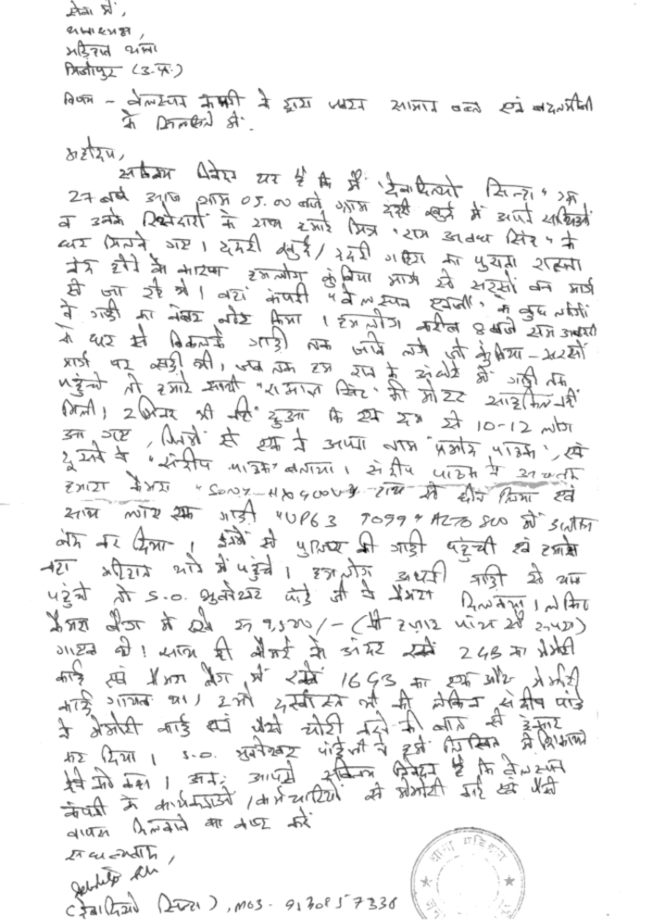 सेवा में,
थानाध्यक्ष,
मड़िहान थाना
मिर्जापुर (उ.प्र.)
विषय - वेलस्पन कंपनी के द्वारा सामान एवं बदतमीजी
के सिलसिले में.
महोदय,
सविनय निवेदन यह है कि मैं "देबादित्यो सिन्हा"
27 वर्ष आज शाम 05.00 बजे ग्राम ददरी खुर्द में अपने साथियों
व उनके रिश्तेदारों के साथ हमारे मित्र "राम अवध सिंह" के
घर मिलने गए। ददरी खुर्द/ददरी का पुराना रास्ता
बंद होने के कारण हमलोग मार्ग से सरसों वन मार्ग
से जा रहे थे। वहां कंपनी "वेलस्पन एनर्जी" के कुछ लोगों
ने गाड़ी का नंबर नोट किया। हमलोग करीब 8 बजे राम अवध
के घर से निकलके गाड़ी तक जाने लगे जो सरसों
मार्ग पर खड़ी थी, जब तक हम रात के अंधेरे में गाड़ी तक
पहुंचे तो हमारे साथी सिंह" की मोटर साइकिल नहीं
मिली। 2 मिनट भी नहीं हुआ कि एक दम से 10-12 लोग
आ गए, जिनमें से एक ने अपना नाम "प्रमोद पाठक", एवं
दूसरे ने "संदीप पाठक" बताया। संदीप पाठक ने
हमारा कैमरा "SONY-HX400V" हाथ से छीन लिया एवं
साथ लाए एक गाड़ी "UP63 T0994" ALTO 800 में डालकर
बंद कर दिया। इतने में पुलिस की गाड़ी पहुंची एवं हमलोग
मड़िहान थाने में पहुंचे। हमलोग अपनी गाड़ी से थाने
पहुंचे तो S.O. भुवनेश्वर पांडे जी ने कैमरा दिलवाया। लेकिन
कैमरा बैग में रखे रु 9,500/- (नौ हज़ार पांच सौ रूपया)
गायब थी। साथ ही कैमरे के अंदर रखे 2GB का मेमोरी
कार्ड एवं कैमरा बैग में रखे 16GB का एक और मेमोरी
कार्ड गायब था। हमने दर्खास्त भी की लेकिन संदीप पांडे
ने मेमोरी कार्ड एवं पैसे चोरी करने की बात से इन्कार
कर दिया। S.O. भुवनेश्वर पांडेजी ने हमें लिखित में शिकायत
देने को कहा। अतः आपसे सविनय निवेदन है कि वेलस्पन
कंपनी के कार्यकर्ताओं/कर्मचारियों से मेमोरी कार्ड एवं पैसे
वापस दिलवाने का कष्ट करें
सधन्यवाद,
(देबादित्यो सिन्हा), MOB - 9130857338
थाना मड़िहान